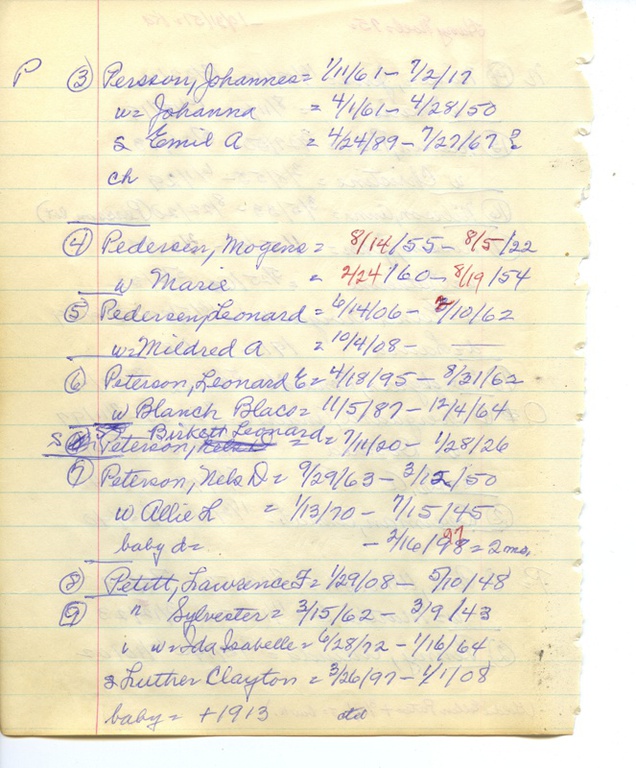 P ③ Persson, Johannes = 1/11/61 - 7/2/17
w = Johanna = 4/1/61 - 4/28/50
s Emil A = 4/24/89 - 7/27/67
ch
④ Pedersen, Mogens = 8/14/55 - 8/5/22
w Marie = 2/24/60 - 8/19/54
⑤ Pedersen, Leonard = 6/14/06 - /10/62
w = Mildred A = 10/4/08 - ——
⑥ Peterson, Leonard E = 4/18/95 - 8/31/62
w Blanch Blaco = 11/5/87 - 12/4/64
s Peterson, Birkett Leonard = 7/11/20 - 1/28/26
⑦ Peterson, Nels D = 9/29/63 - 3/12/50
w Allie L = 1/13/70 - 7/15/45
baby d = - 2/16/97 = 2 mo.
⑧ Petitt, Lawrence F = 1/29/08 - 5/10/48
⑨ " Sylvester = 3/15/62 - 3/9/43
w = Ida Isabelle = 6/28/72 - 1/16/64
s Luther Clayton = 3/26/97 - 1/1/08
baby = +1913